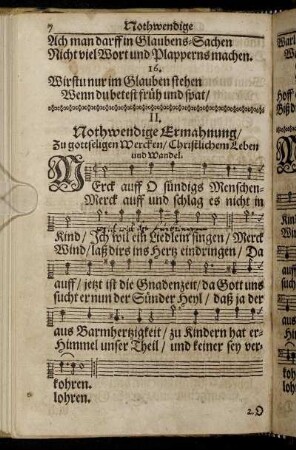 Nothwendige
Ach man darff in Glaubens-Sachen
Nicht viel Wort und Plapperns machen.
16.
Wirstu nur im Glauben stehen
Wenn du betest früh und spat/
II.
Nothwendige Ermahnung/
Zu gottseligen Wercken/ Christlichem Leben
und Wandel.
MErck auff O sündigs Menschen-
Merck auff und schlag es nicht in
Kind/ Ich wil ein Liedlein singen/ Merck
Wind/ laß dirs ins Hertz eindringen/ Da
auff/ jetzt ist die Gnadenzeit/ da Gott uns
sucht er nun der Sünder Heyl/ daß ja der
aus Barmhertzigkeit/ zu Kindern hat er-
Himmel unser Theil/ und keiner sey ver-
kohren.
lohren.
2. O